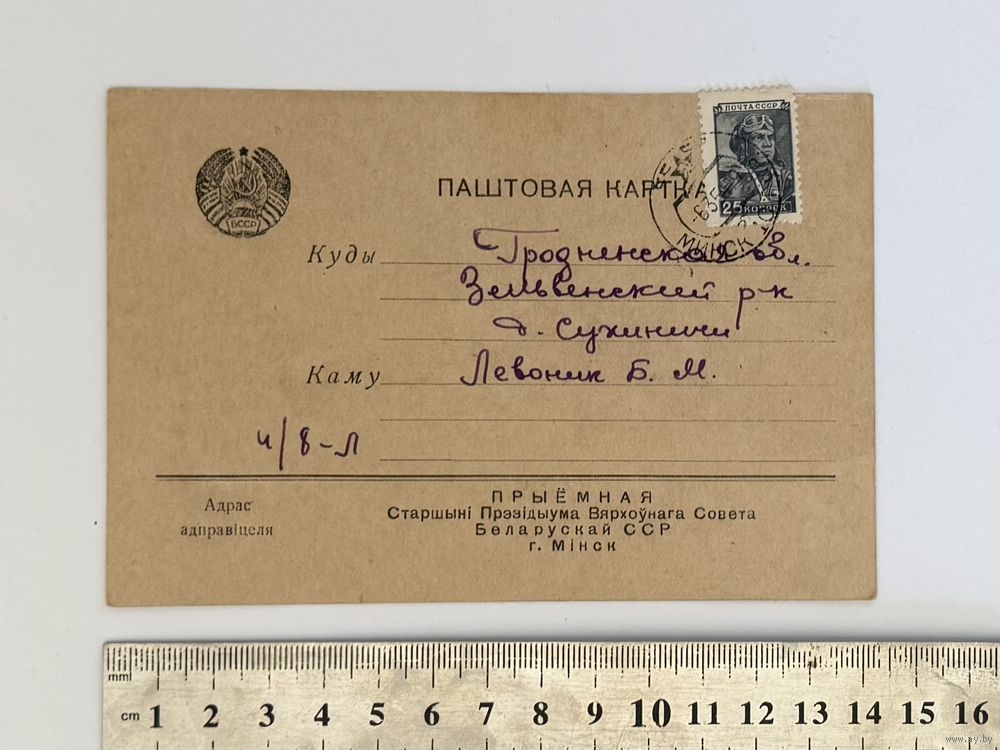 БССР
ПАШТОВАЯ КАРТКА
ПОЧТА СССР
25 КОПЕЕК
МИНСК
Куды Гродненская обл.
Зельвенский р-н
д. Сухиничи
Каму Левоник Б. М.
ч/8-Л
Адрас адправіцеля
ПРЫЁМНАЯ
Старшыні Прэзідыума Вярхоўнага Совета
Беларускай ССР
г. Мінск
mm
cm 1 2 3 4 5 6 7 8 9 10 11 12 13 14 15 16
www.ay.by